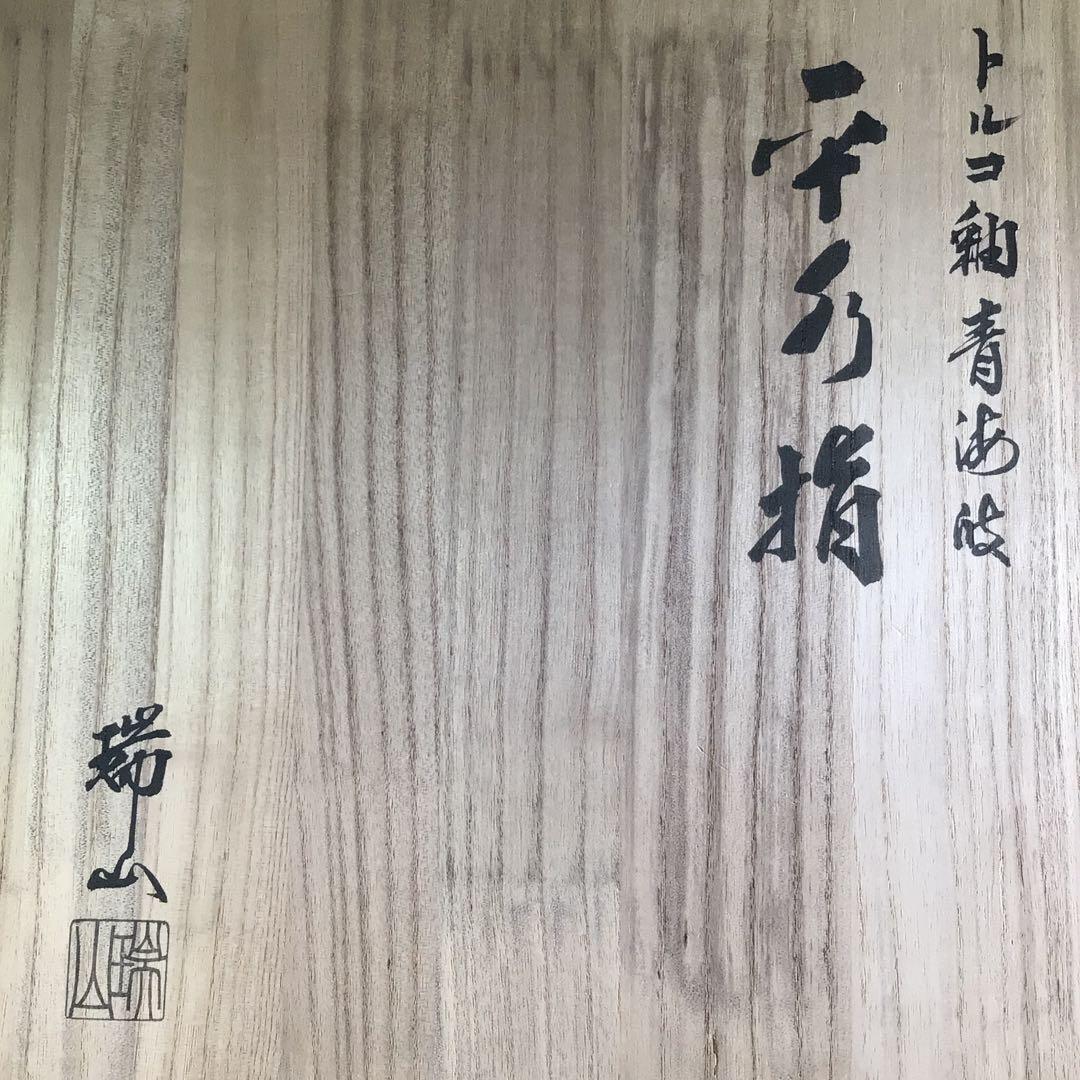 トルコ釉青海波
平水指
瑞山
瑞山